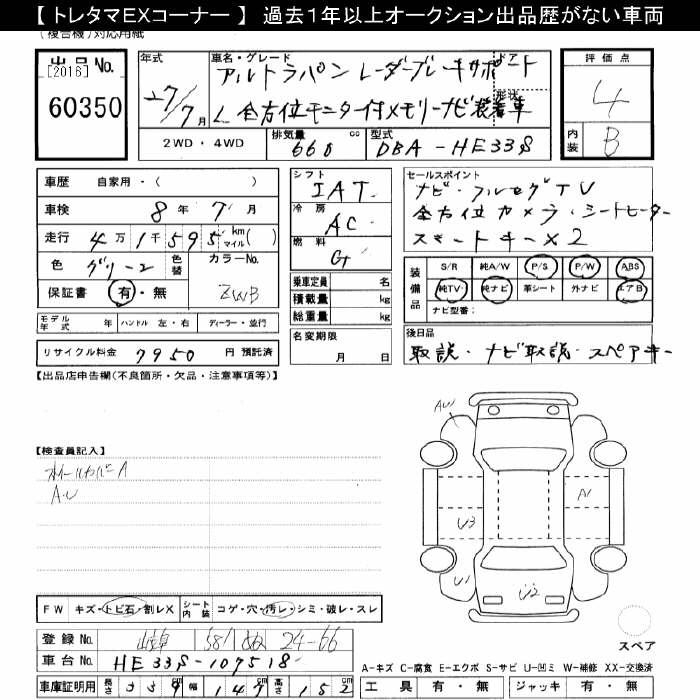 【 トレタマEXコーナー 】 過去１年以上オークション出品歴がない車両
(複合機) 対応用紙
出品 No.
[2016]
60350
年式
27/7月
車名・グレード
アルトラパン レーダーブレーキサポート
L 全方位モニター付メモリーナビ装着車
ドア
形状
2WD・4WD
排気量 660 cc
型式 DBA-HE33S
評価点
4
内装 B
車歴 自家用・( )
車検 8年 7月
走行 4万1千595 km マイル( )
色 グリーン 色替 カラーNo. ZWB
保証書 有・無
モデル年式 年 ハンドル 左・右 ディーラー・並行
リサイクル料金 7950 円 預託済
シフト IAT
冷房 AC
燃料 G
乗車定員 名
積載量 kg
総重量 kg
名変期限
月 日
セールスポイント
ナビ・フルセグTV
全方位カメラ・シートヒーター
スマートキー×2
装備品
S/R 純A/W P/S P/W ABS
純TV 純ナビ 革シート 外ナビ エアB
ナビ型番:
後日品
取説・ナビ取説・スペアキー
【出品店申告欄(不良箇所・欠品・注意事項等)】
【検査員記入】
ホイールカバーA
A.U
AU
A1
U3
U1
U2
スペア
FW キズ・トビ石・割レX
シート内装 コゲ・穴・汚レ・シミ・破レ・スレ
登録 No. 岐阜 581 ぬ 24-66
車台 No. HE33S-107518
車庫証明用 長さ 339 cm 幅 147 cm 高さ 152 cm
A-キズ C-腐食 E-エクボ S-サビ U-凹ミ W-補修 XX-交換済
工具 有・無 ジャッキ 有・無